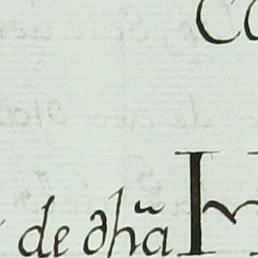 Co
de dhã M